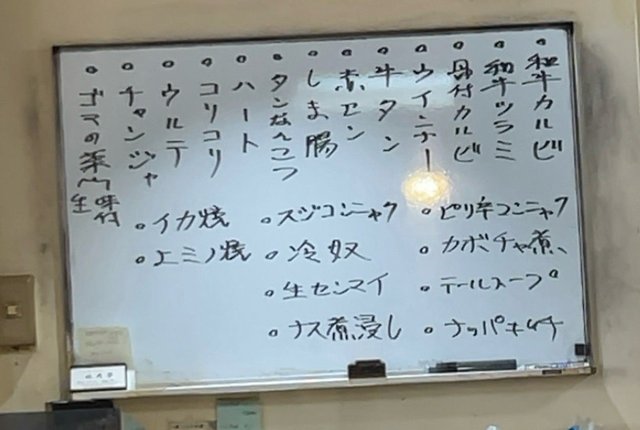 ○和牛カルビ
○和牛ツラミ
○骨付カルビ
○ウインナー
○牛タン
○赤セン
○しま腸
○タンなんこつ
○ハート
○コリコリ
○ウルテ
○チャンジャ
○ゴマの葉 味付 生
○ピリ辛コンニャク
○カボチャ煮
○テールスープ
○ナッパキムチ
○スジコンニャク
○冷奴
○生センマイ
○ナス煮浸し
○イカ焼
○上ミノ焼